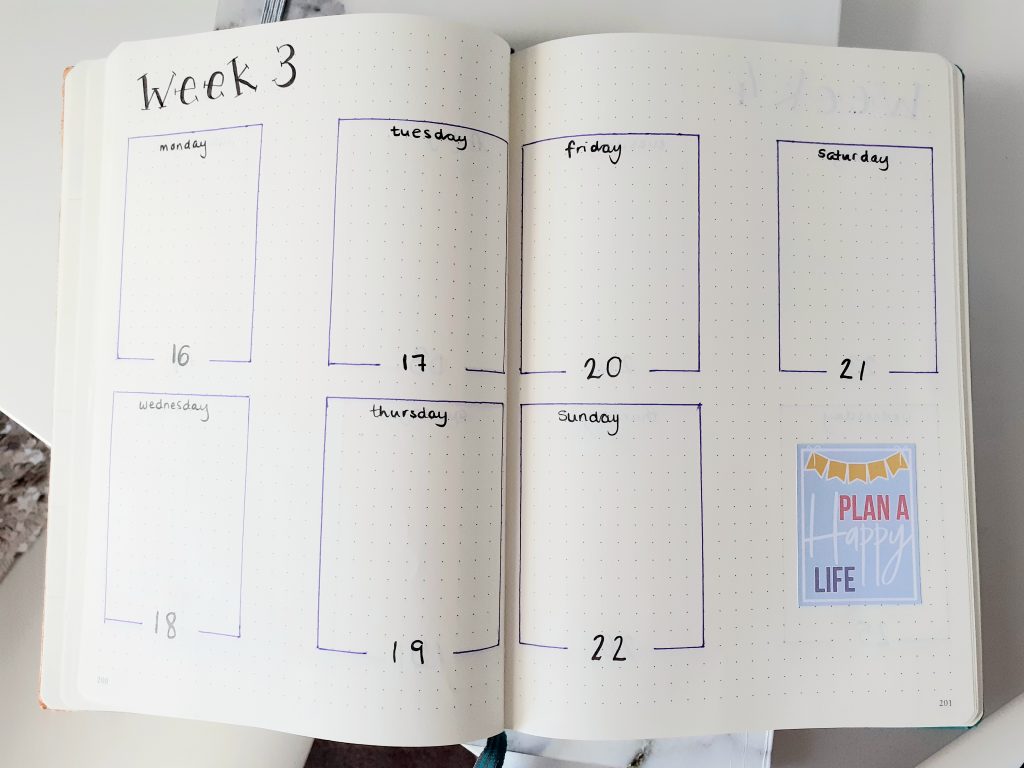 Week 3
monday
16
tuesday
17
wednesday
18
thursday
19
200
Week 4
friday
20
saturday
21
Sunday
22
PLAN A
Happy
LIFE
201